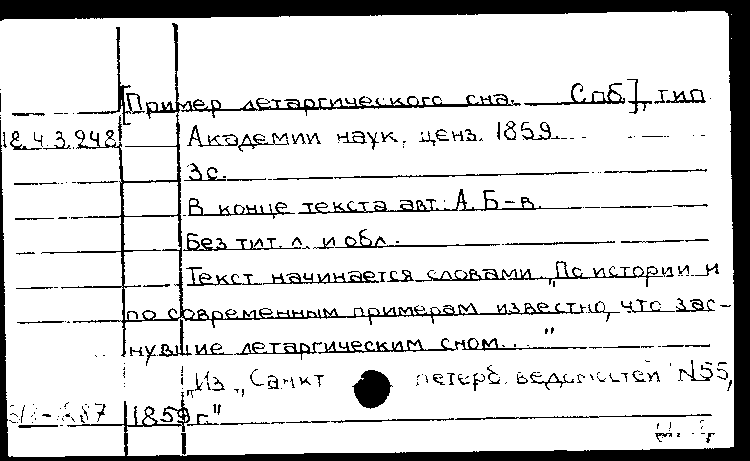 [Пример летаргического сна. Спб.], тип
18.4.3.248 Академии наук, ценз. 1859.
3с.
В конце текста авт.: А. Б-в.
Без тит. л. и обл.
Текст начинается словами „По истории и
по современным примерам известно, что зас-
нувшие летаргическим сном..."
„Из „Санкт петерб. ведомостей N55,
1859г."